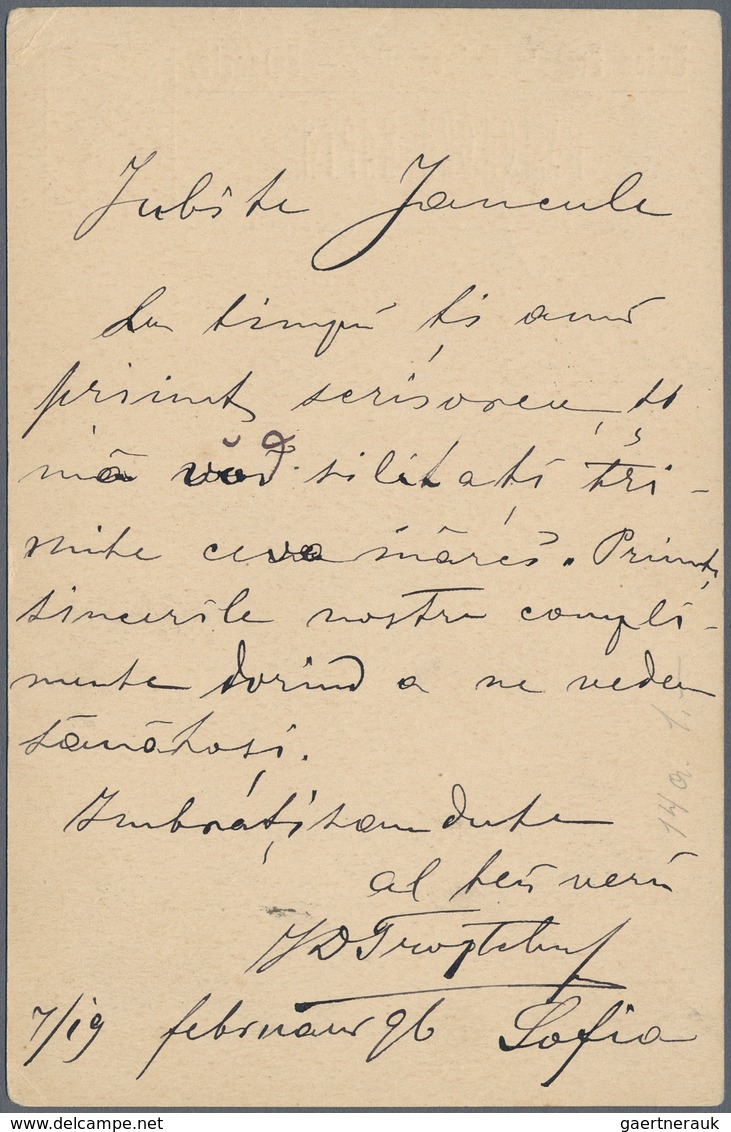 Iubite Jancule
La timpu ți amu
primit scrisorea, și
mă văd silit ați tri-
mite ceva mărci. Primiți
sincerile nostre compli-
mente dorind a ne vedea
sănătoși.
Imbrățisandute
al teu veru
7/19 februar 96 Sofia
14a. 1.-
gaertnerauk